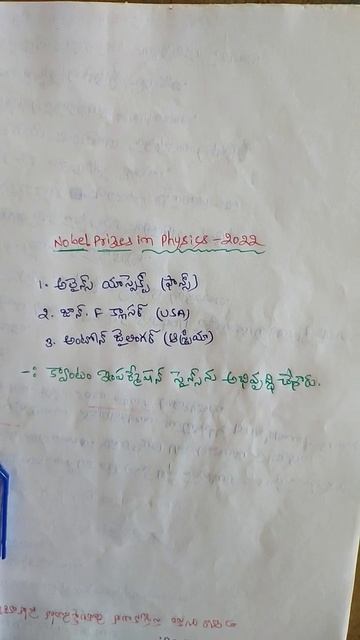 Nobel Prizes in Physics - 2022
1. అలైన్స్ యాస్పెక్ట్ (ఫ్రాన్స్)
2. జాన్. F క్లాసర్ (USA)
3. అంటోన్ జైలింగర్ (ఆస్ట్రియా)
-: క్వాంటం ఇంఫర్మేషన్ సైన్స్‌ను అభివృద్ధి చేశారు.